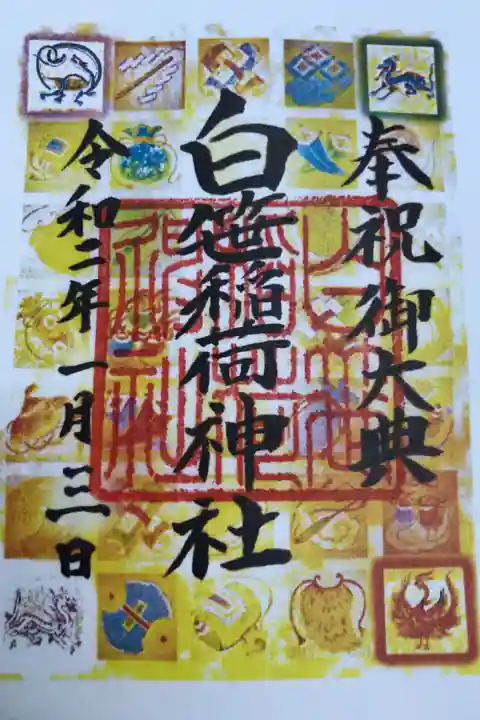 奉祝御大典
白笹稲荷神社
令和二年一月三日